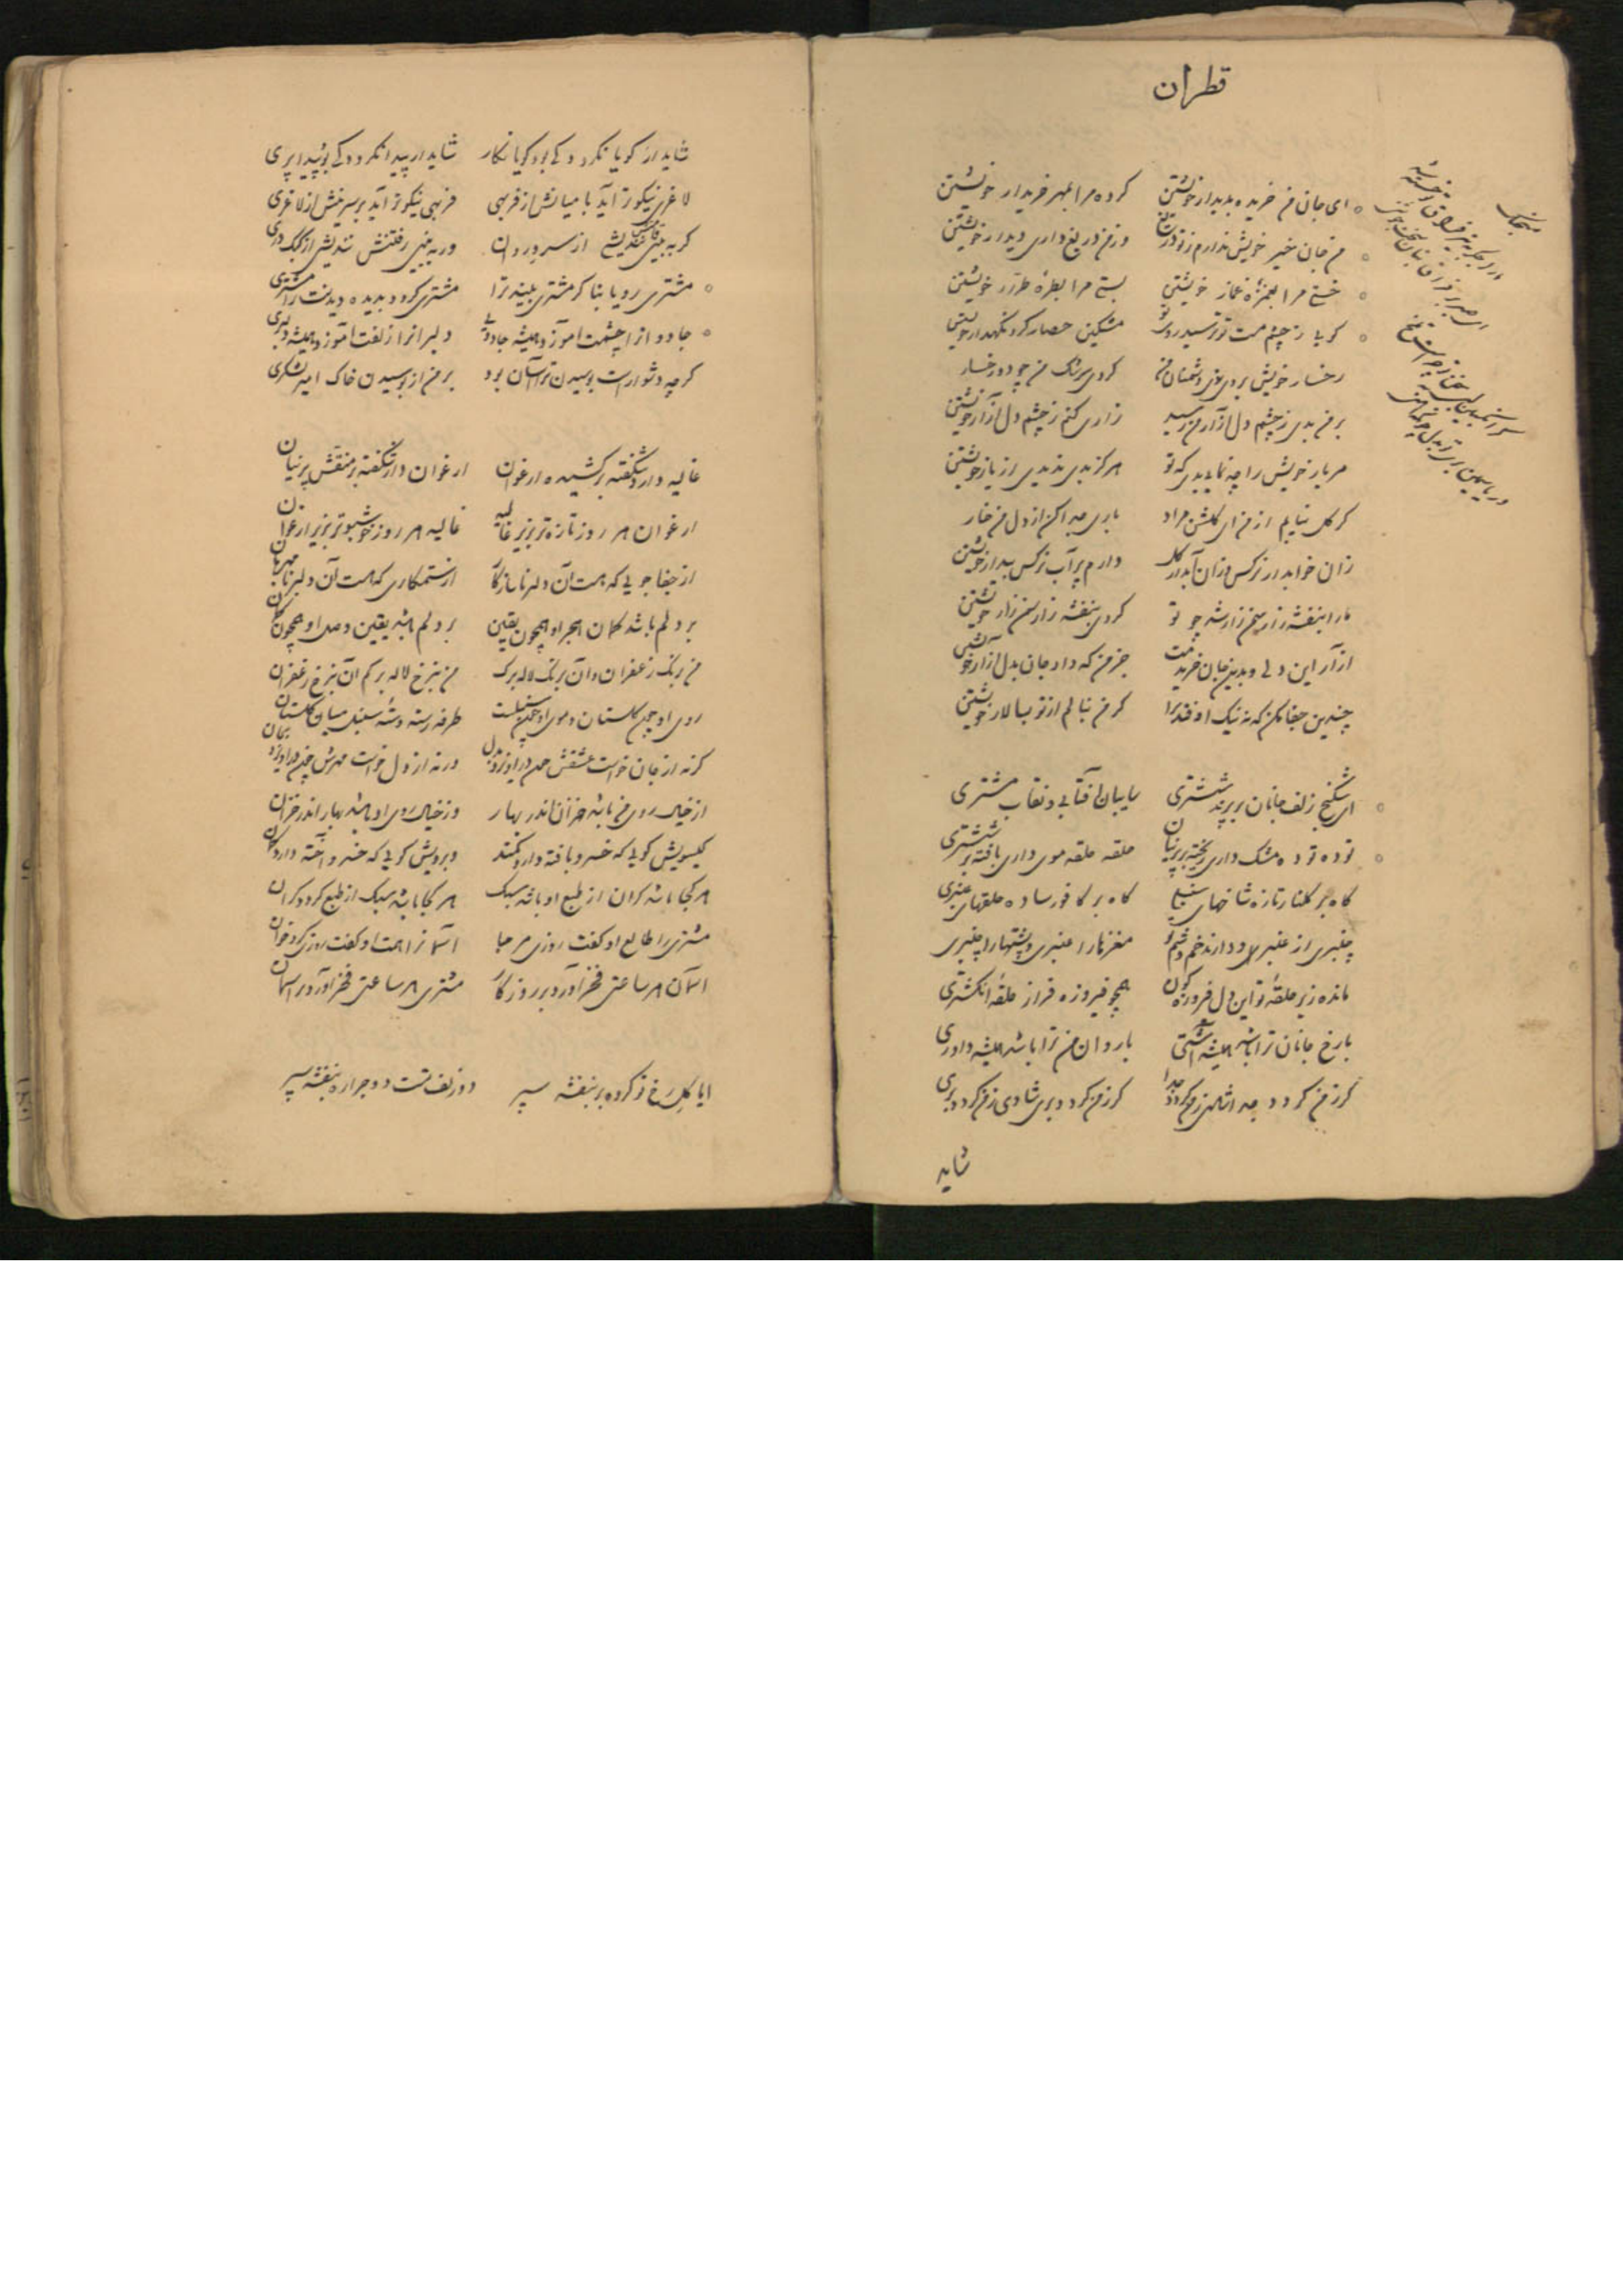 قطران
ای جان من خریده بدیدار خویشتن کرده مرا بمهر خریدار خویشتن
من جان خویش ندارم ز تو دریغ وز من دریغ داری دیدار خویشتن
خستی مرا بغمزه غماز خویشتن بستی مرا بطره طرار خویشتن
گویا ز چشم مست تو ترسید روی تو مشکین حصار کرد نگهدار خویشتن
رخسار خویش بردی دشمنان من کردی برنگ من چو دو رخسار
بر من بدی ز چشم دل آزار من رسید زاری کنم ز چشم دل آزار خویشتن
مر یار خویش را چه نمایی بدی که تو هرگز بدی ندیدی از یار خویشتن
گر گل نیابم از من ای گلشن مراد باری جدا کن از دل من خار
زان خوابدار نرگس وزان آبدار گل دارم پر آب نرگس بیدار خویشتن
ما را بنفشه زار سمن زار شد چو تو کردی بنفشه زار سمن زار خویشتن
جز من که داد جان بدل آزار خویشتن
چندین جفا مکن که نه نیک اوفتد ترا گر من بنالم از تو بسالار خویشتن
ای شکنج زلف جانان بر پرند ششتری سایبان آفتابی و نقاب مشتری
توده توده مشک داری ریخته بر پرنیان حلقه حلقه موی داری بافته بر ششتری
گاه بر گلنار تازه شاخهای سنبلی گاه بر کافور ساده حلقهای عنبری
چنبری از عنبری و دارند خم و شم تو مغزها را عنبری و پشتها را چنبری
مانده زیر حلقه تو این دل فیروزه گون همچو فیروزه فراز حلقه انگشتری
با رخ جانان ترا باشد همیشه آشتی با روان من ترا باشد همیشه داوری
گر ز من گردد جدا شادی ز من گردد جدا گر ز من گردد بری شادی ز من گردد بری
شاید
شاید ار گویا نگردد کی بود گویا نگار شاید ار پیدا نگردد کی بود پیدا پری
لاغری نیکوتر آید با میانش از فربهی فربهی نیکوتر آید بر سرینش از لاغری
گر به بینی قامتش نندیشی از سرو روان ور به بینی رفتنش نندیشی از کبک دری
مشتری رویا بتا گر مشتری بیند ترا مشتری گردد بدیده دیدنت را مشتری
جادو از چشمت آموزد همیشه جادویی دلبر از زلفت آموزد همیشه دلبری
گرچه دشوارست بوسیدن ترا آسان بود بر من از بوسیدن خاک امیر لشکری
غالیه دارد شکفته بر کشیده ارغوان ارغوان دارد شکفته بر منقش پرنیان
ارغوان هر روز تازه تر بزیر غالیه غالیه هر روز خوشبوتر بزیر ارغوان
از جفا جویی که هست آن دلبر ناسازگار از ستمکاری که هست آن دلبر نامهربان
بر دلم باشد گمان هجر او همچون یقین بر دلم باشد یقین وصل او همچون گمان
من برنگ زعفران و آن برنگ لاله برگ من بنرخ لاله برگم آن بنرخ زعفران
روی او چون گلستان و موی او چون سنبلست طرفه رسته دسته سنبل میان گلستان
گرنه از جان خواست عشقش چون در آویزد بدل ورنه از دل خواست مهرش چون در آویزد بجان
از خیال روی من باشد خزان اندر بهار وز خیال روی او باشد بهار اندر خزان
گیسویش گویی که خسرو بافته دارد کمند وبرویش گویی که خسرو آخته دارد کمان
هر کجا باشد گران از طبع او باشد سبک هر کجا باشد سبک از طبع گردد گران
مشتری را طالع او گفت روزی مرحبا آسمان را همت او گفت روزی
آسمان هر ساعتی فخر آورد بر روزگار مشتری هر ساعتی فخر آورد بر آسمان
ایا گل رخ تو کرده بر بنفشه سپر دو زلف تست دو جراره بنفشه سپر